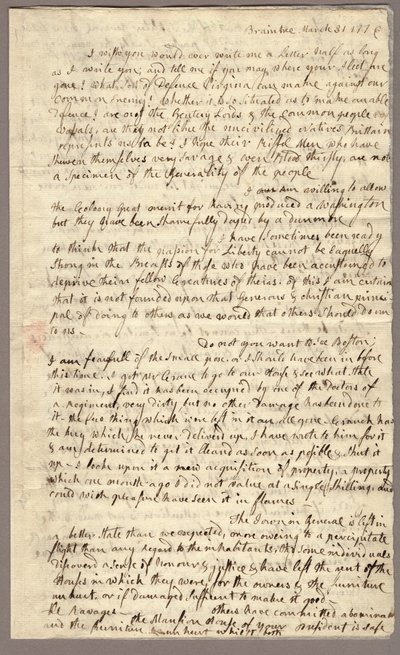 Braintree March 31 1776
I wish you would ever write me a Letter half as long
as I write you; and tell me if you may where your Fleet are
gone? What sort of Defence Virginia can make against our
common Enemy? Whether it is so situated as to make an able
Defence? are not the Gentery Lords & the common people
vassals, are they not like the uncivilized Natives Brittain
represents us to be? I hope their Riffel Men who have
shewen themselves very savage & even Blood thirsty; are not
a specimen of the Generality of the people
I am willing to allow
the Colony great merrit for having produced a Washington
but they have been shamefully duped by a Dunmore
I have sometimes been ready
to think that the passion for Liberty cannot be Eaquelly
strong in the Breasts of those who have been accustomed to
deprive their fellow Creatures of theirs. of this I am certain
that it is not founded upon that Generous & christian princi
pal of doing to others as we would that others should do un
to us
Do not you want to see Boston;
I am fearfull of the small pox, or I should have been in before
this time. I got mr Crane to go to our House & see what state
it was in, I find it has been occupied by one of the Doctors of
a regiment, very dirty but no other Damage has been done to
it. the few things which were left in it are all gone. Cranch has
the key which he never deliverd up, I have wrote to him for it
& am determined to get it cleand as soon as posible & shut it
up I look upon it a new acquisition of property, a property
which one month ago I did not value at a single Shilling, and
could with pleasure have seen it in flames
The Town in General is left in
better state than we expected, more oweing to a percipitate
flight than any Regard to the inhabitants, tho some individuals
discoverd a sense of Honour & justice & have left the rent of the
Houses in which they were, for the owners & the furniture
unhurt, or if damaged sufficent to make it good
others have committed abominable
Ravages
the Mansion House of your President is safe
and the furniture unhurt whilst both